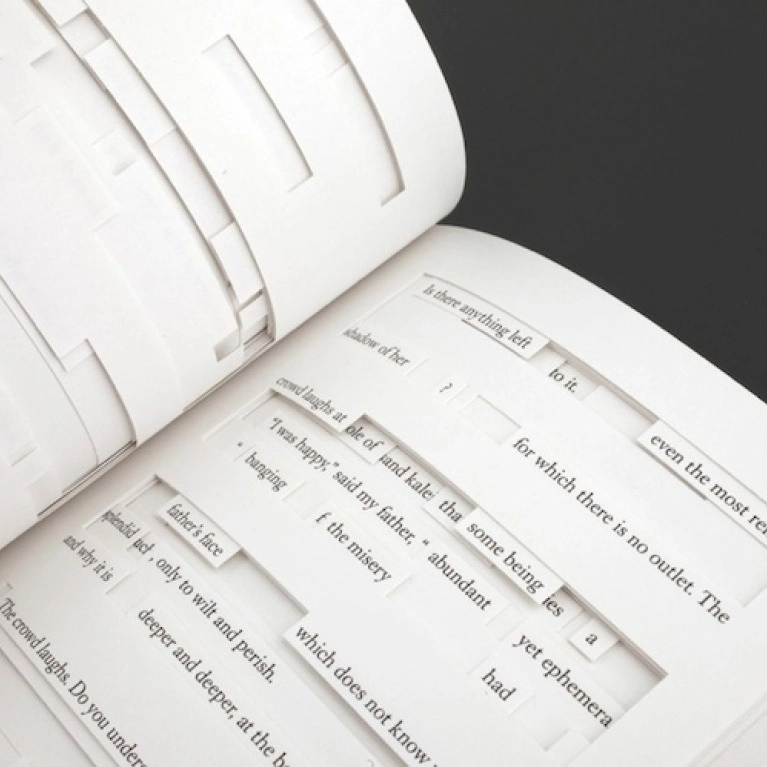 Is there anything left to it. even the most
shadow of her ? for which there is no outlet. The
crowd laughs at ole of and kale tha some being les a
"I was happy," said my father, " abundant yet ephemera
" banging f the misery had
splendid father's face which does not know
and why it is , only to wilt and perish.
deeper and deeper, at the
The crowd laughs. Do you